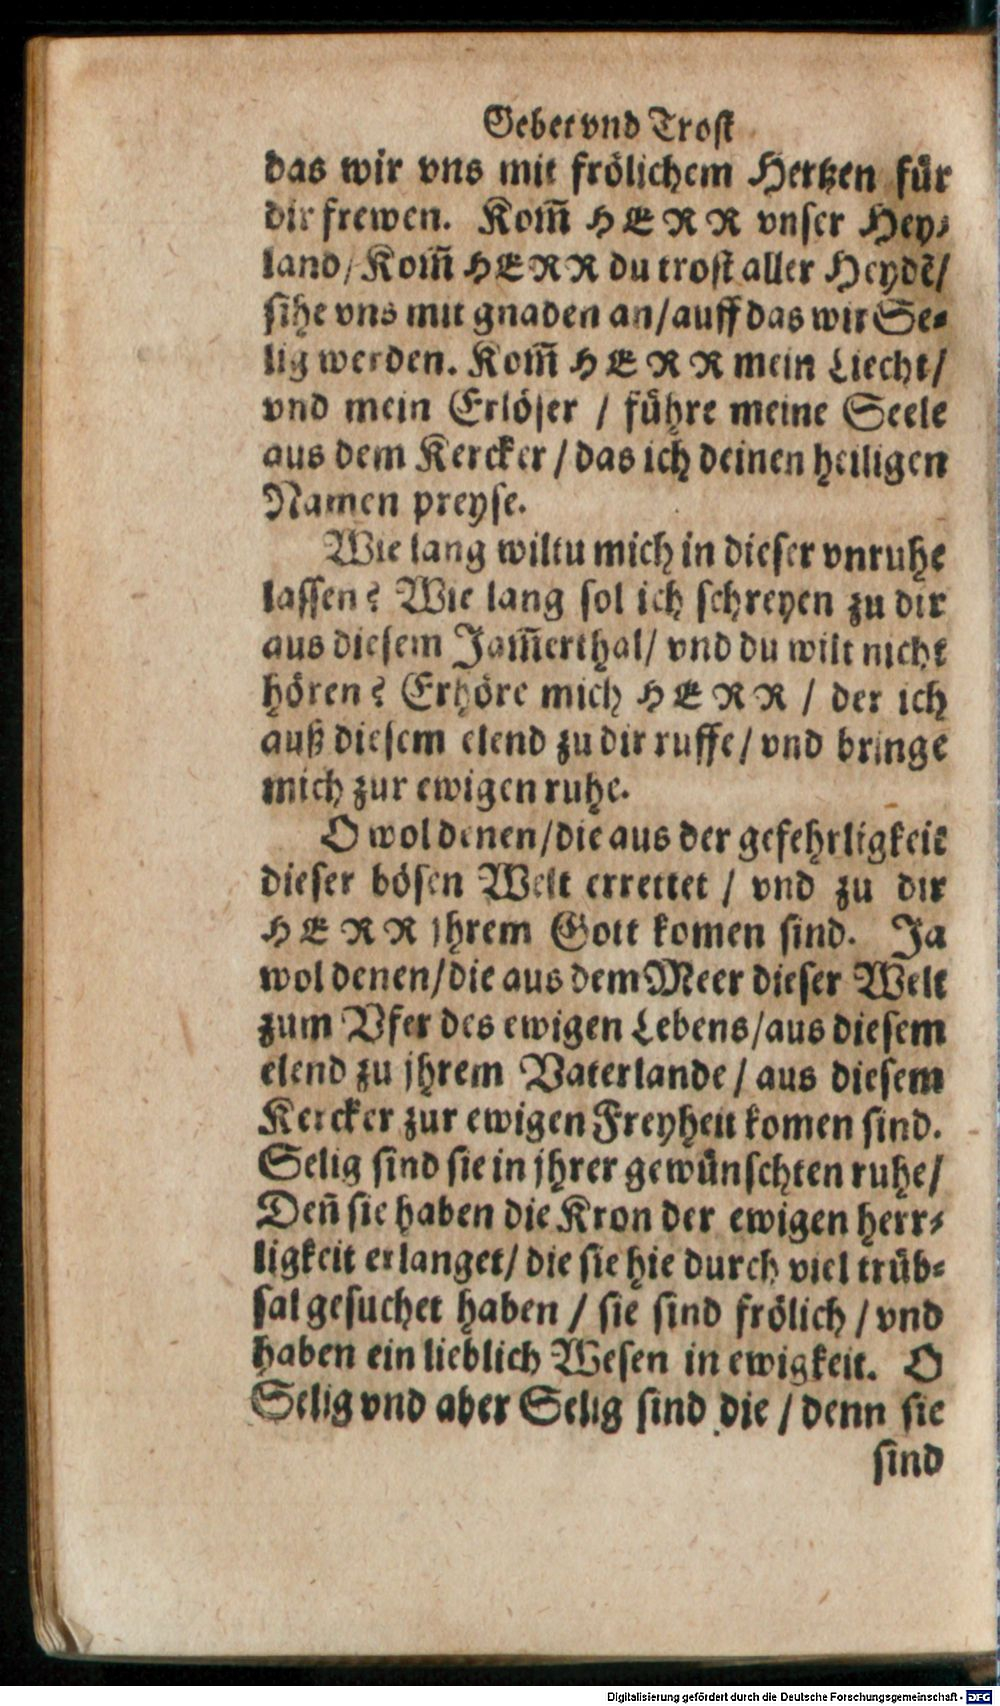 Gebet vnd Trost
das wir vns mit frölichem Hertzen für
dir frewen. Kom̃ HERR vnser Hey⸗
land/ Kom̃ HERR du trost aller Heydẽ/
sihe vns mit gnaden an/ auff das wir Se⸗
lig werden. Kom̃ HERR mein Liecht/
vnd mein Erlöser / führe meine Seele
aus dem Kercker / das ich deinen heiligen
Namen preyse.
Wie lang wiltu mich in dieser vnruhe
lassen? Wie lang sol ich schreyen zu dir
aus diesem Jam̃erthal/ vnd du wilt nicht
hören? Erhöre mich HERR / der ich
auß diesem elend zu dir ruffe/ vnd bringe
mich zur ewigen ruhe.
O wol denen/ die aus der gefehrligkeit
dieser bösen Welt errettet / vnd zu dir
HERR jhrem Gott komen sind. Ja
wol denen/ die aus dem Meer dieser Welt
zum Vfer des ewigen Lebens/ aus diesem
elend zu jhrem Vaterlande / aus diesem
Kercker zur ewigen Freyheit komen sind.
Selig sind sie in jhrer gewünschten ruhe/
Deñ sie haben die Kron der ewigen herr⸗
ligkeit erlanget/ die sie hie durch viel trüb⸗
sal gesuchet haben / sie sind frölich / vnd
haben ein lieblich Wesen in ewigkeit. O
Selig vnd aber Selig sind die / denn sie
sind
Digitalisierung gefördert durch die Deutsche Forschungsgemeinschaft - DFG